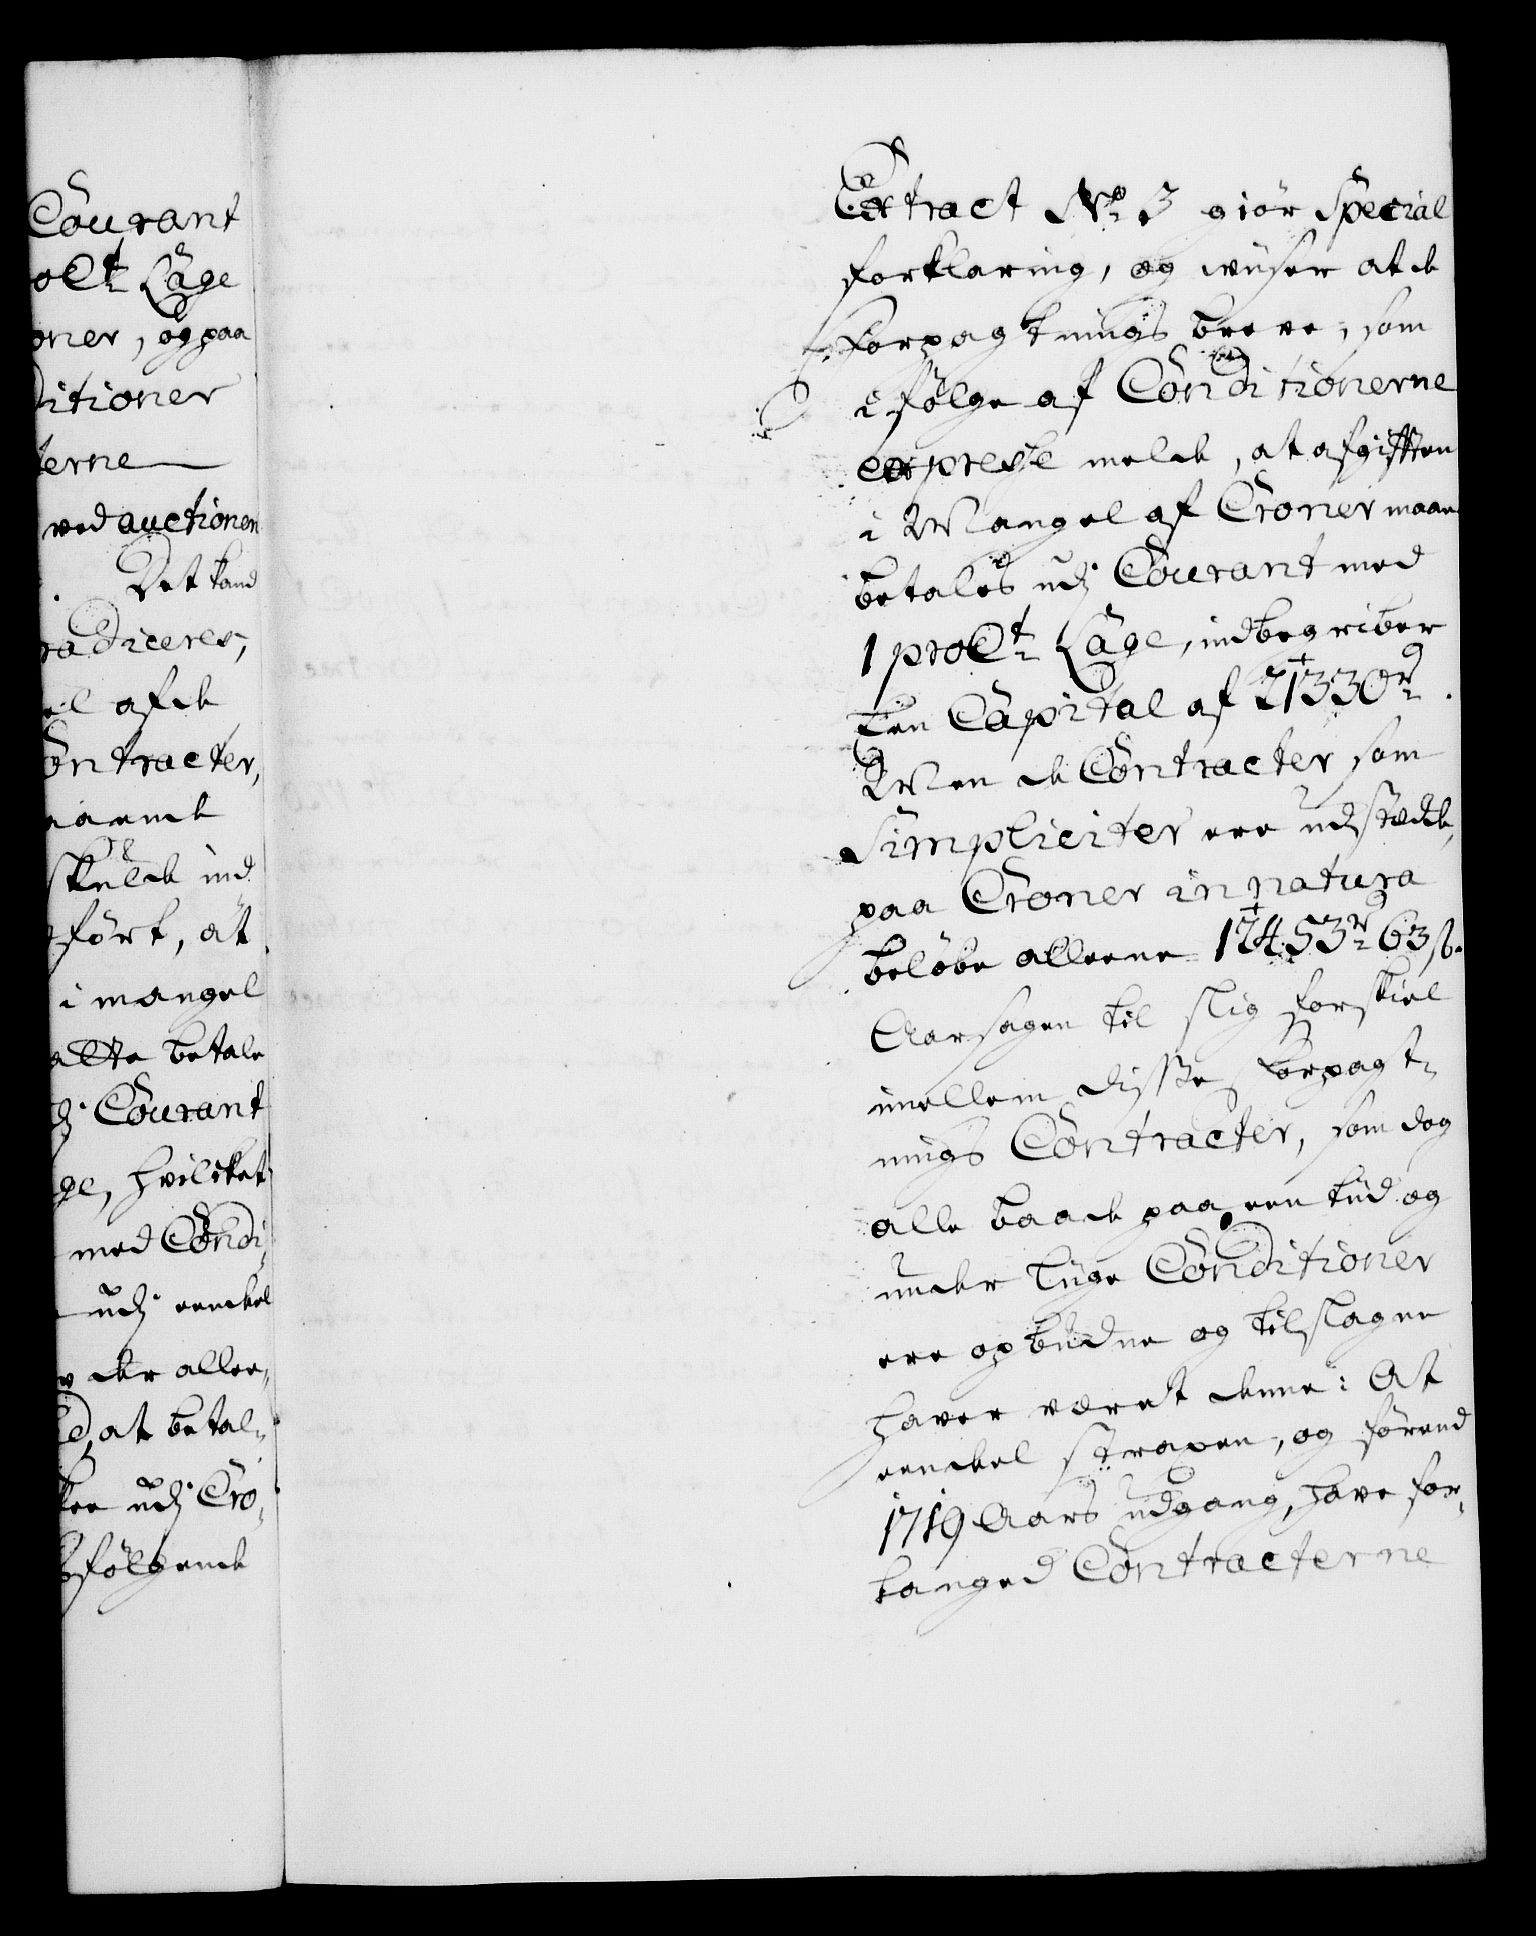 Courant
oCt Lage
oner, og paa
ditioner
terne
ved auctionen
Det kand
radiceres,
el af de
ontracter,
aaende
skulde ind
ført, at
i mangel
atte betale
dj Courant
ge, hvilcket
med Condi,
udj eendeel
der allee,
d, at betal,
kee udj Cro,
følgende
Extract No 3 giør Special
forklaring, og wiiser at de
Forpagtnings breve, som
i følge af Conditionerne
expresse melde, at afgifften
i Mangel af Croner maae
betales udj Courant med
1 pro Ct Lage, indbegriber
Een Capital af 21330 r
Men de Contracter som
Simpliciter ere udstædde,
paa Croner in natura
beløbe alleene 17453 r 63 s.
Aarsagen til slig forskiel
imellem disse Forpagt,
nings Contracter, som dog
alle baade paa een tiid og
under liige Conditioner
ere opbudne og tilslagne
haver været denne: At
eendeel straxen, og førend
1719 Aars udgang, have for,
langed Contracterne